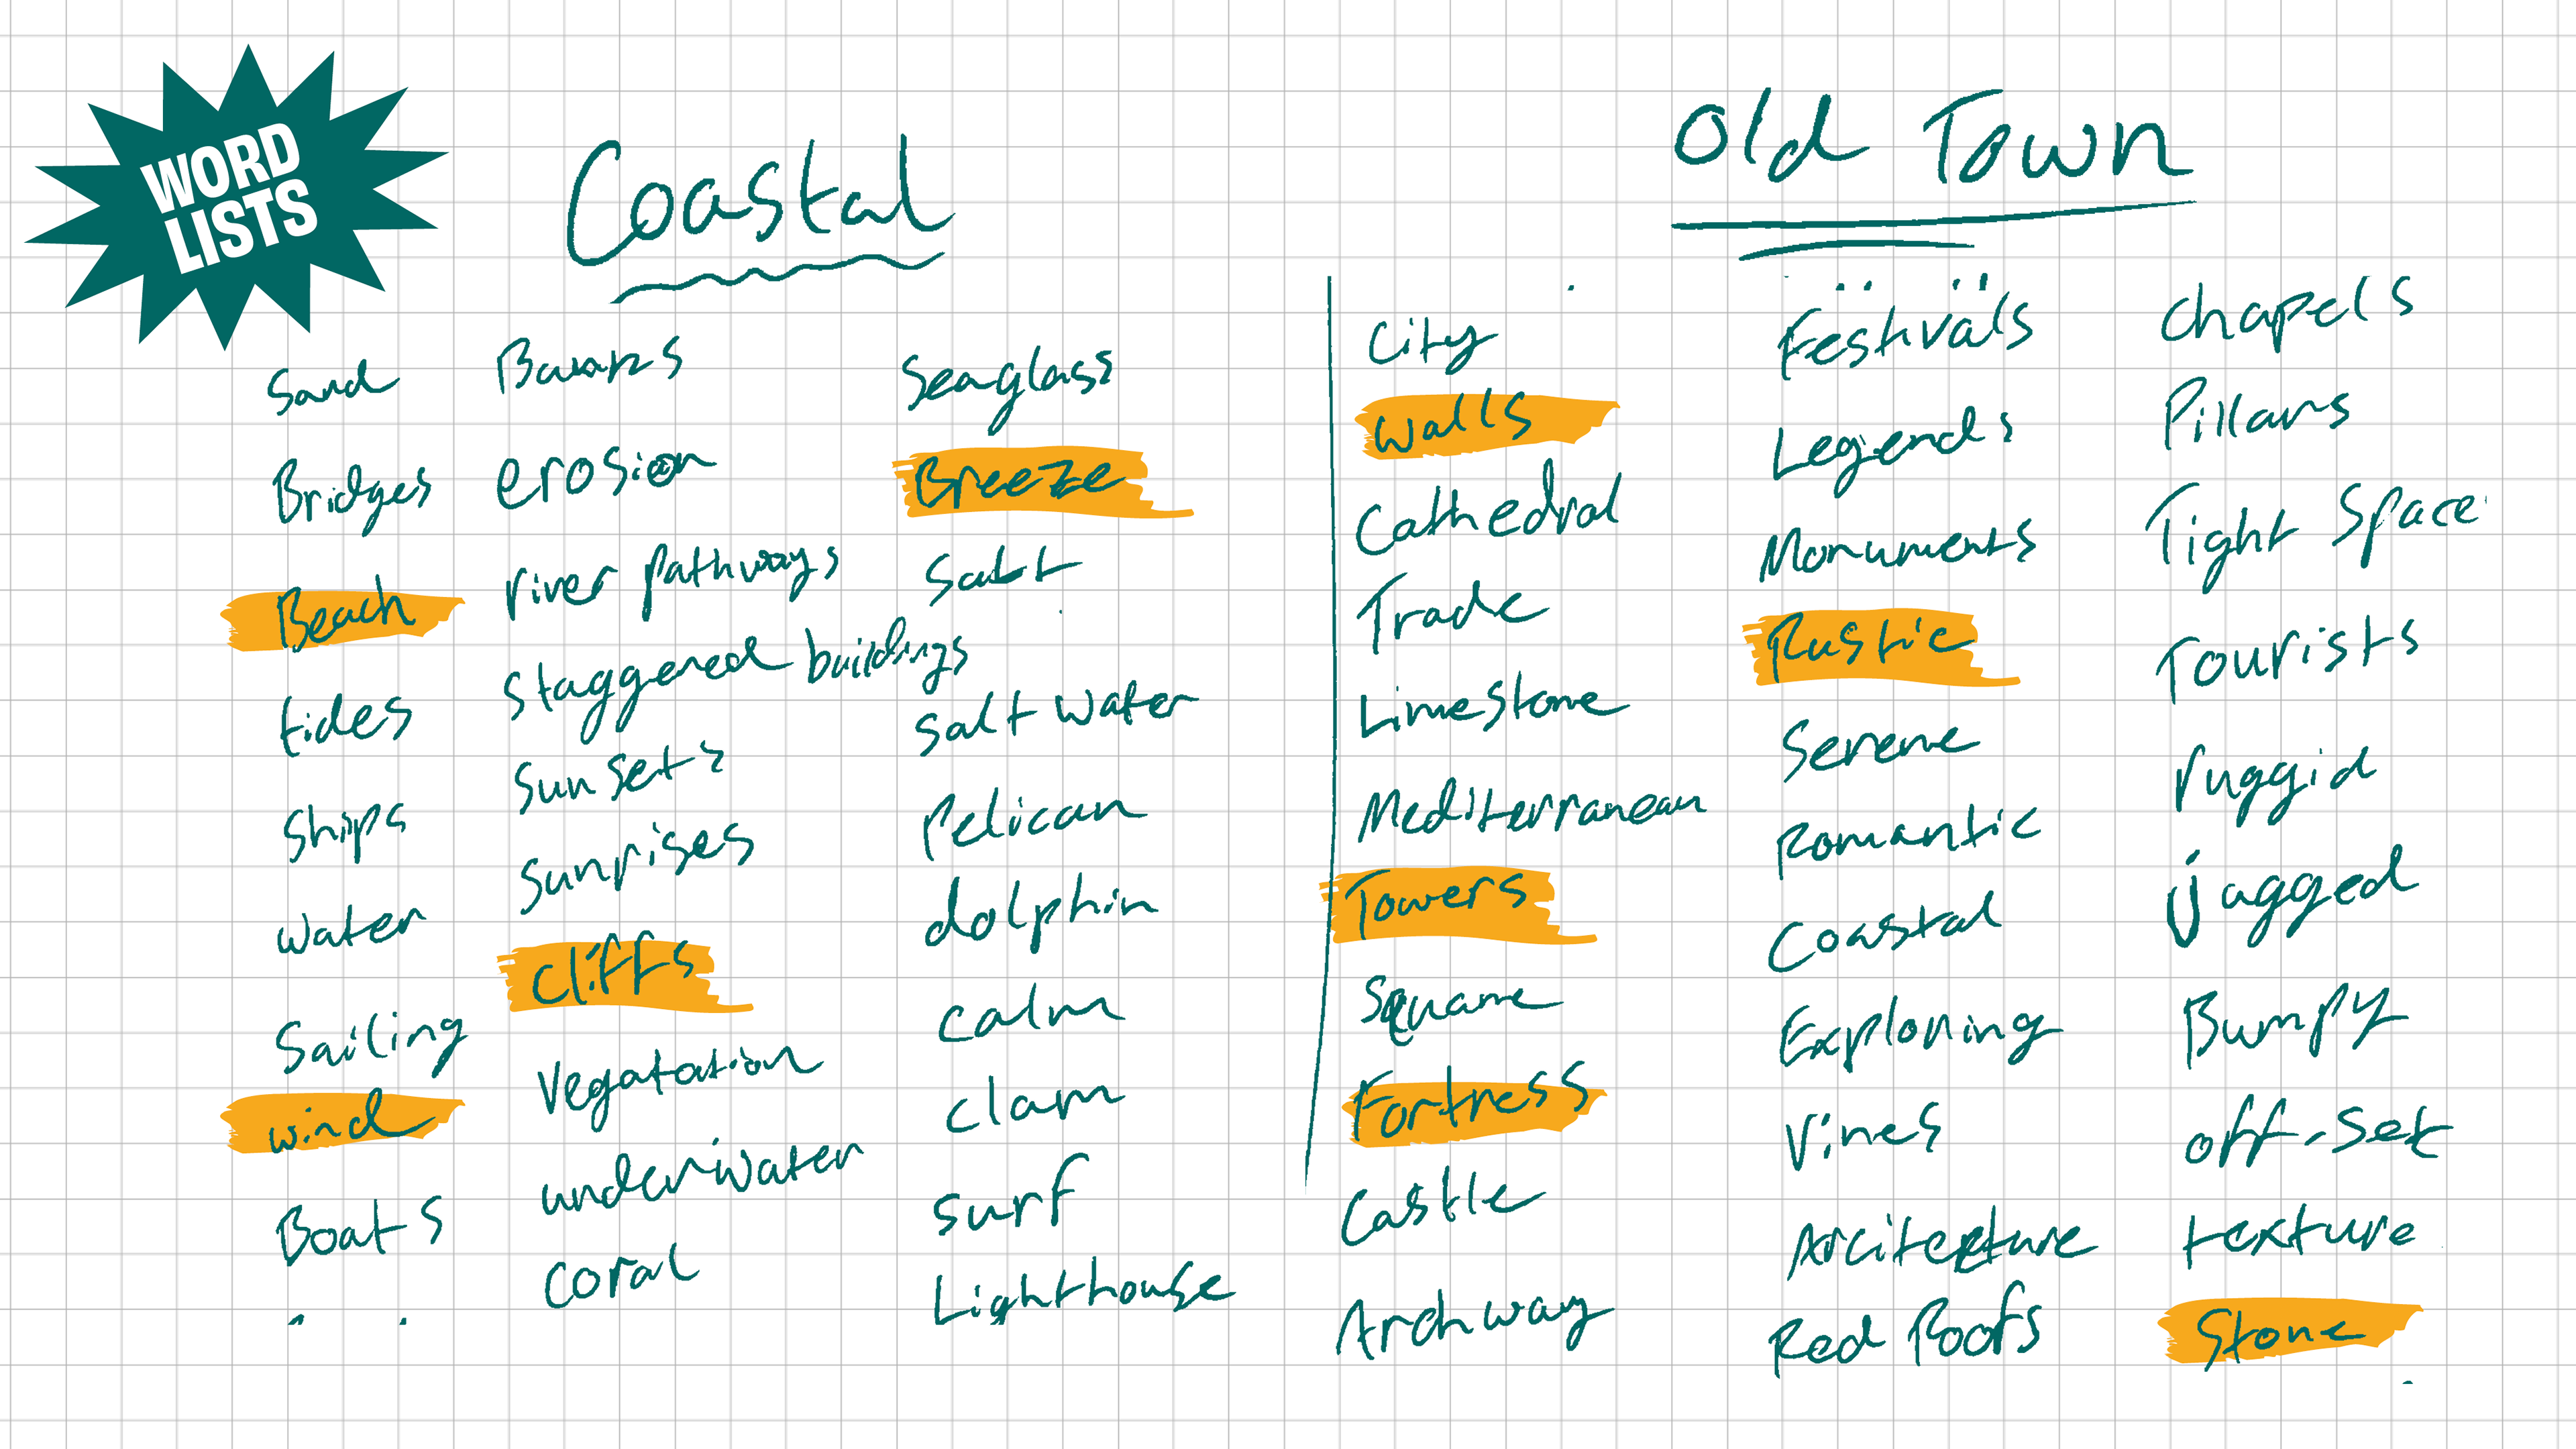 WORD
LISTS
Coastal
Sand
Bridges
Beach
tides
Ships
water
Sailing
wind
Boats
erosion
river pathways
Staggered buildings
Sunsets
Sunrises
Cliffs
Vegatation
underwater
coral
Seaglass
Breeze
Salt
Salt water
Pelican
dolphin
calm
clam
surf
Lighthouse
Old Town
City
Walls
Cathedral
Trade
Limestone
Mediterranean
Towers
Square
Fortress
Castle
Archway
Festivals
Legends
Monuments
Rustic
Serene
Romantic
Coastal
Exploring
Vines
Arcitecture
Red Roofs
Chapels
Pillars
Tight Space
Tourists
ruggid
jagged
Bumpy
off-set
texture
Stone